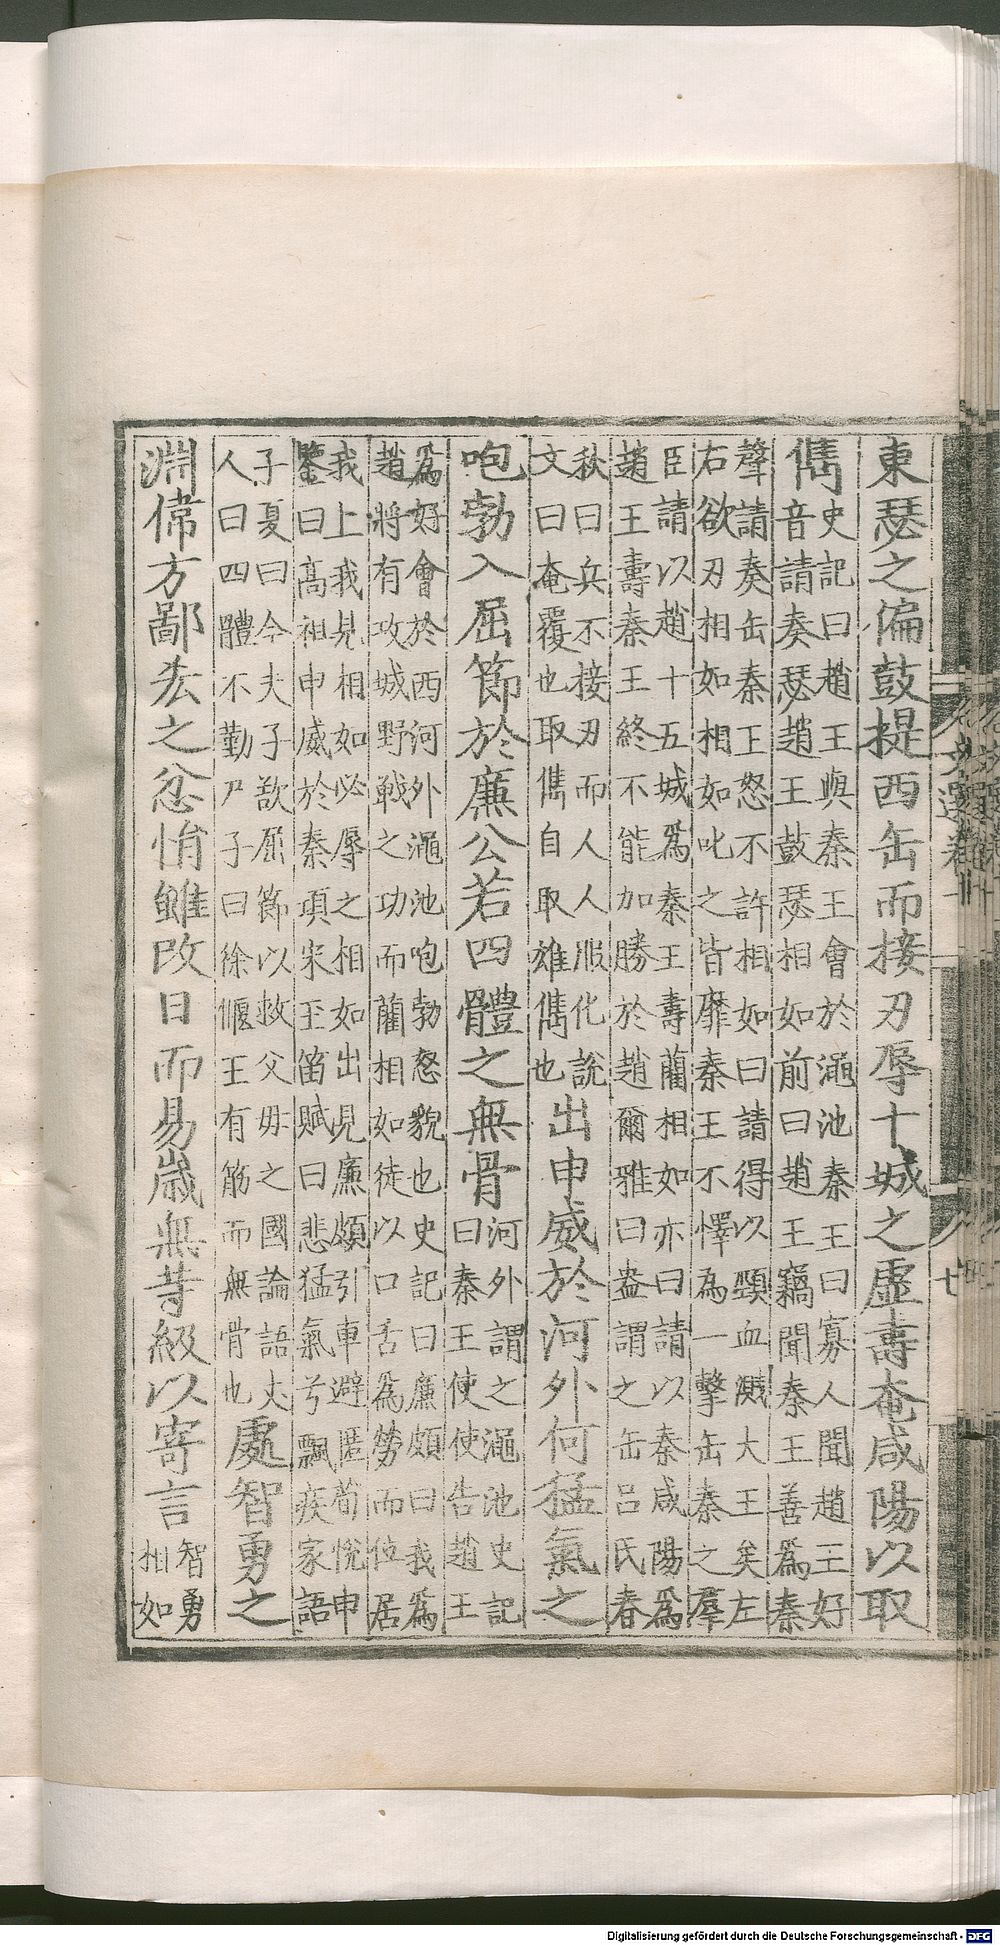 東瑟之偏鼓提西缶而接刃辱十城之虛壽奄咸陽以取
儁
史記曰趙王與秦王會於澠池秦王曰寡人聞趙王好
音請奏瑟趙王鼓瑟相如前曰趙王竊聞秦王善爲秦
聲請奏缶秦王怒不許相如曰請得以頸血濺大王矣左
右欲刃相如相如叱之皆靡秦王不懌爲一擊缶秦之羣
臣請以趙十五城爲秦王壽藺相如亦曰請以秦咸陽爲
趙王壽秦王終不能加勝於趙爾雅曰盎謂之缶呂氏春
秋曰兵不接刃而人人服化說
文曰奄覆也取儁自取雄儁也
出申威於河外何猛氣之
咆勃入屈節於廉公若四體之無骨
河外謂之澠池史記
曰秦王使使告趙王
爲好會於西河外澠池咆勃怒貌也史記曰廉頗曰我爲
趙將有攻城野戰之功而藺相如徒以口舌爲勞而位居
我上我見相如必辱之相如出見廉頗引車避匿荀悅申
鑒曰高祖申威於秦項宋玉笛賦曰悲猛氣兮飄疾家語
子夏曰今夫子欲屈節以救父母之國論語丈
人曰四體不勤尸子曰徐偃王有筋而無骨也
處智勇之
淵偉方鄙吝之忿悁雖改日而易歲無等級以寄言
智勇
相如
文選卷十
七
Digitalisierung gefördert durch die Deutsche Forschungsgemeinschaft - DFG